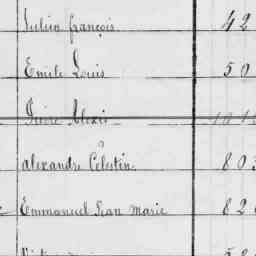 Julien françois 42
Emile Louis 50
Pierre Alexis
alexandre Celestin 803
Emmanuel Jean Marie 82